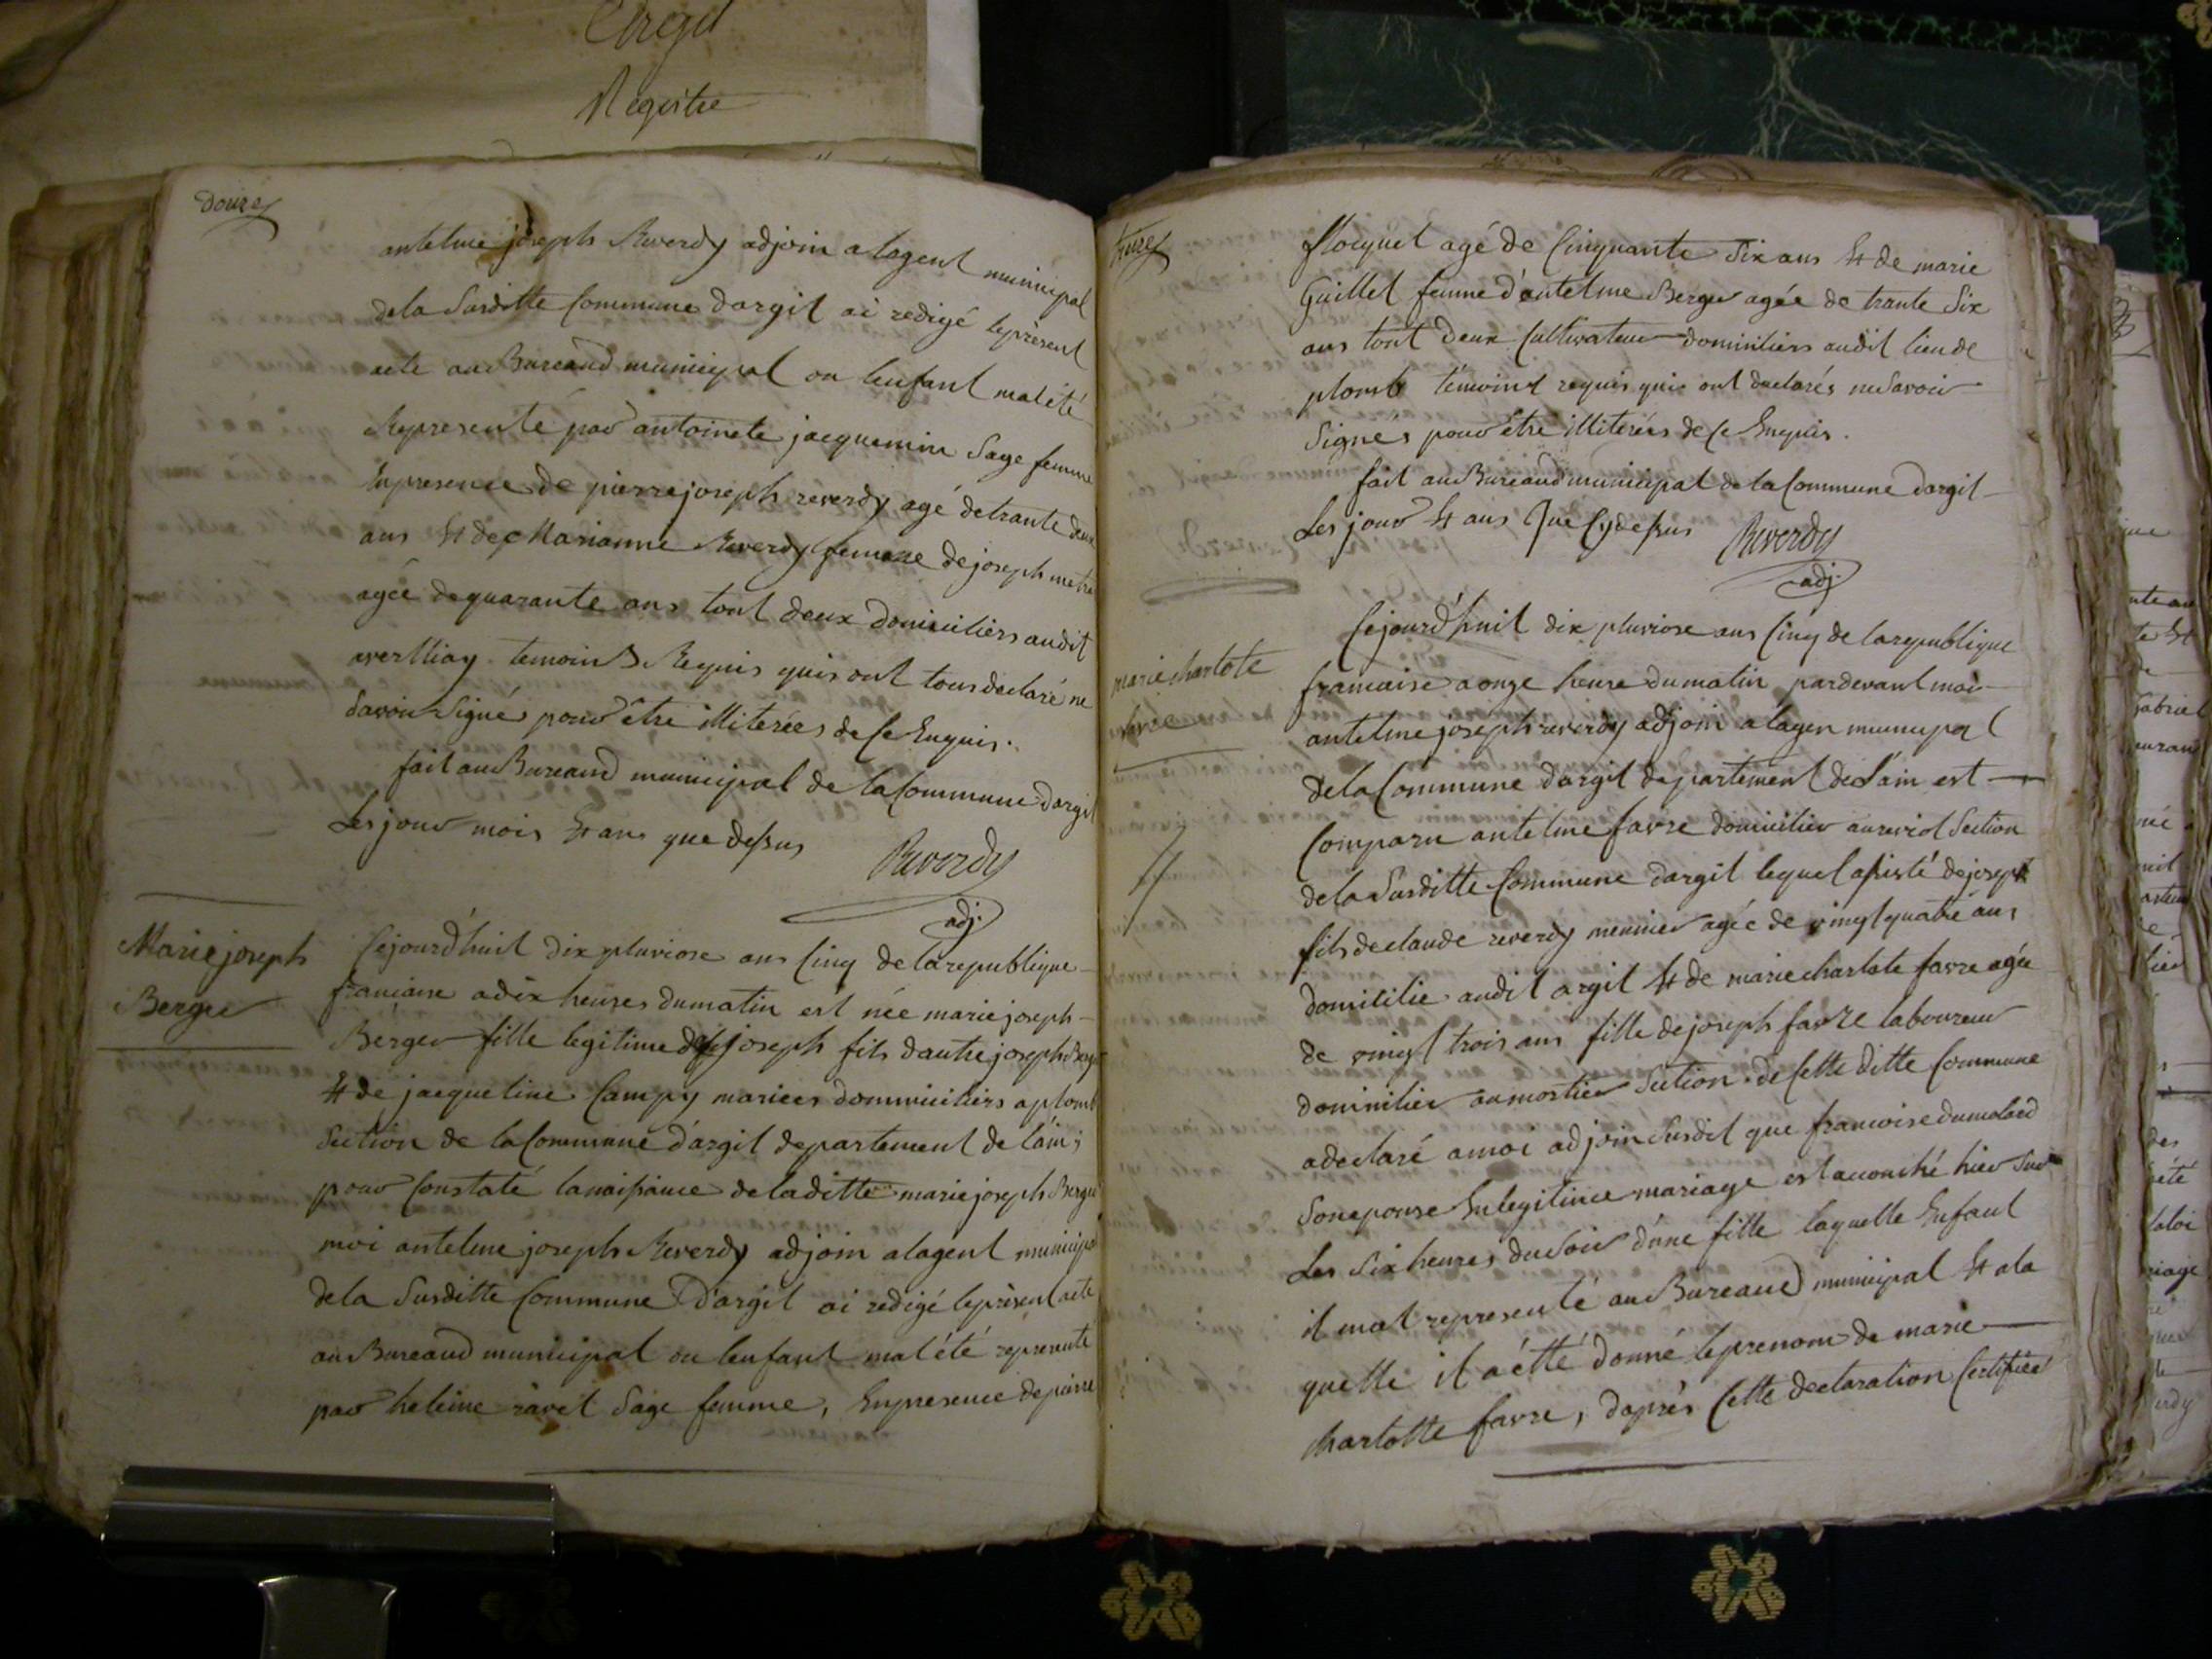 argil
Registre
douze
antelme joseph Reverdy adjoin a lagent municipal
dela Susditte Commune dargil ai redigé leprèsent
acte au Bureaud municipal ou lenfant mat été
Representé par antoinete jacquemin Sage femme
Enpresence de pierre joseph reverdy agé detrante deux
ans Et de Marianne Reverdy femme dejoseph
agée dequarante ans tout deux domiciliérs audit
temoins Requis quis ont tous declaré ne
Savoir Signés pour être illiterées de Ce Enquis.
fait au Bureaud municipal de la Commune dargil
Les jour mois Et ans que dessus Reverdy
adj.
Marie joseph
Berger
Cejourd'huit dix pluviose ans Cinq de larepublique
francaise adix heures dumatin est née marie joseph
Berger fille legitime de joseph fils dautre joseph Berger
Et de jacqueline Campy mariées dommiciliérs a plomb
Section de la Commune d'argil departement de lain;
pour Constaté lanaissance deladitte marie joseph Berger
moi antelme joseph Reverdy adjoin alagent municipal
dela Susditte Commune D'argil ai redigé leprèsent acte
au Bureaud municipal ou lenfant mat été répresenté
par heleine ravit Sage femme, Enpresence depierre
treize
floquet agé de Cinquante Six ans Et de marie
Guillet femme d'antelme Berger agée de trante Six
ans tout deux Cultivateur dominiliers audit lieu de
plomb témoint requis quis ont declarés ne Savoir
Signés pour être illiterées de Ce Enquis.
fait au Bureaud municipal de la Commune dargil
Les jour Et ans Que Cy dessus Reverdy
adj.
marie charlote
favre
Cejourd'huit dix pluviose ans Cinq de larepublique
francaise a onze heure dumatin pardevant moi
antelme joseph reverdy adjoin alagen municipal
dela Commune dargil departement de L'ain est
Comparu antelme favre domicilier aureriol Section
dela Susditte Commune dargil lequel assisté dejoseph
fils declaude reverdy meunier agée de vingt quatre ans
domicilié audit argil Et de marie charlote favre agée
de vingt trois ans fille dejoseph favre laboureur
dominilier aumortier Section de Cette ditte Commune
adeclaré amoi adjoin Susdit que francoise dumolard
Son epouse Enlegitime mariage est acouché hier Sur
Les Six heures du Soir d'une fille laquelle Enfant
il mat representé au Bureaud municipal Et ala
quelle il a étté donné leprenom de marie
charlotte favre, daprés Cette declaration Certifiée